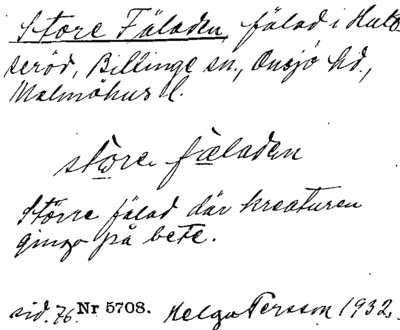 Store Fäladen, fälad i Hult-
seröd, Billinge sn., Onsjö hd.,
Malmöhus l.
store fæladen
Större fälad där kreaturen
gingo på bete.
sid. 76. Nr 5708. Helga Persson 1932.